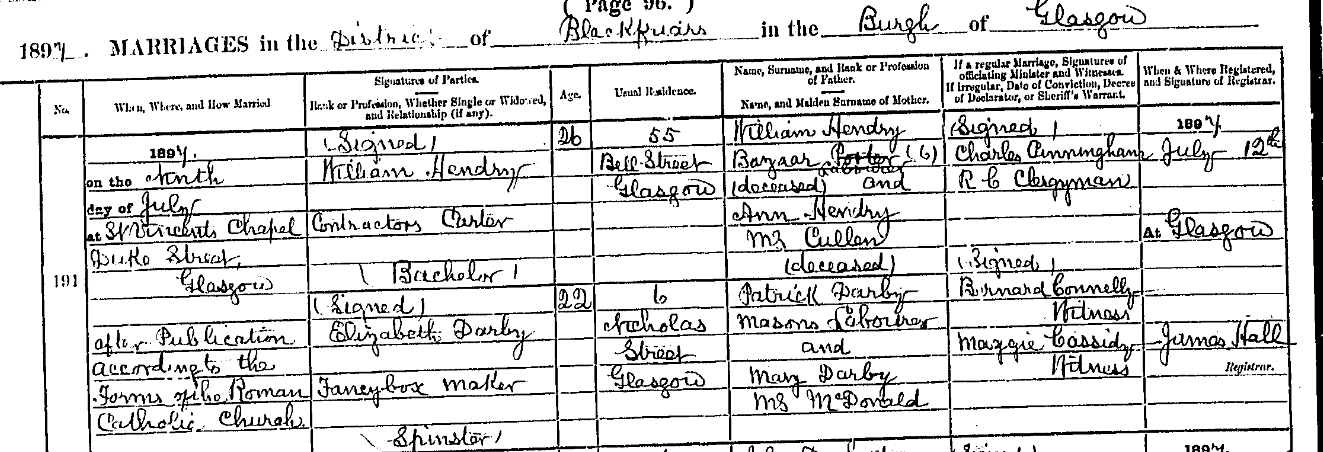 ( Page 96. )
1897. MARRIAGES in the District of Blackfriars in the Burgh of Glasgow
No.
When, Where, and How Married
Signatures of Parties.
Rank or Profession, Whether Single or Widowed,
and Relationship (if any).
Age.
Usual Residence.
Name, Surname, and Rank or Profession
of Father.
Name, and Maiden Surname of Mother.
If a regular Marriage, Signatures of
officiating Minister and Witnesses.
If irregular, Date of Conviction, Decree
of Declarator, or Sheriff's Warrant.
When & Where Registered,
and Signature of Registrar.
191
1897.
on the Ninth
day of July
at St Vincents Chapel
Duke Street,
Glasgow
after Publication
according to the
Forms of the Roman
Catholic Church
(Signed)
William Hendry
Contractors Carter
(Bachelor)
(Signed)
Elizabeth Darby
Fancybox maker
(Spinster)
26
22
55
Bell Street
Glasgow
6
Nicholas
Street
Glasgow
William Hendry
Bazaar Porter (6)
Labourer
(deceased) and
Ann Hendry
MS Cullen
(deceased)
Patrick Darby
Masons Labourer
and
Mary Darby
MS McDonald
(Signed)
Charles Cunningham
R C Clergyman
(Signed)
Bernard Connelly
Witness
Maggie Cassidy
Witness
1897.
July 12th
At Glasgow
James Hall
Registrar.
1897.